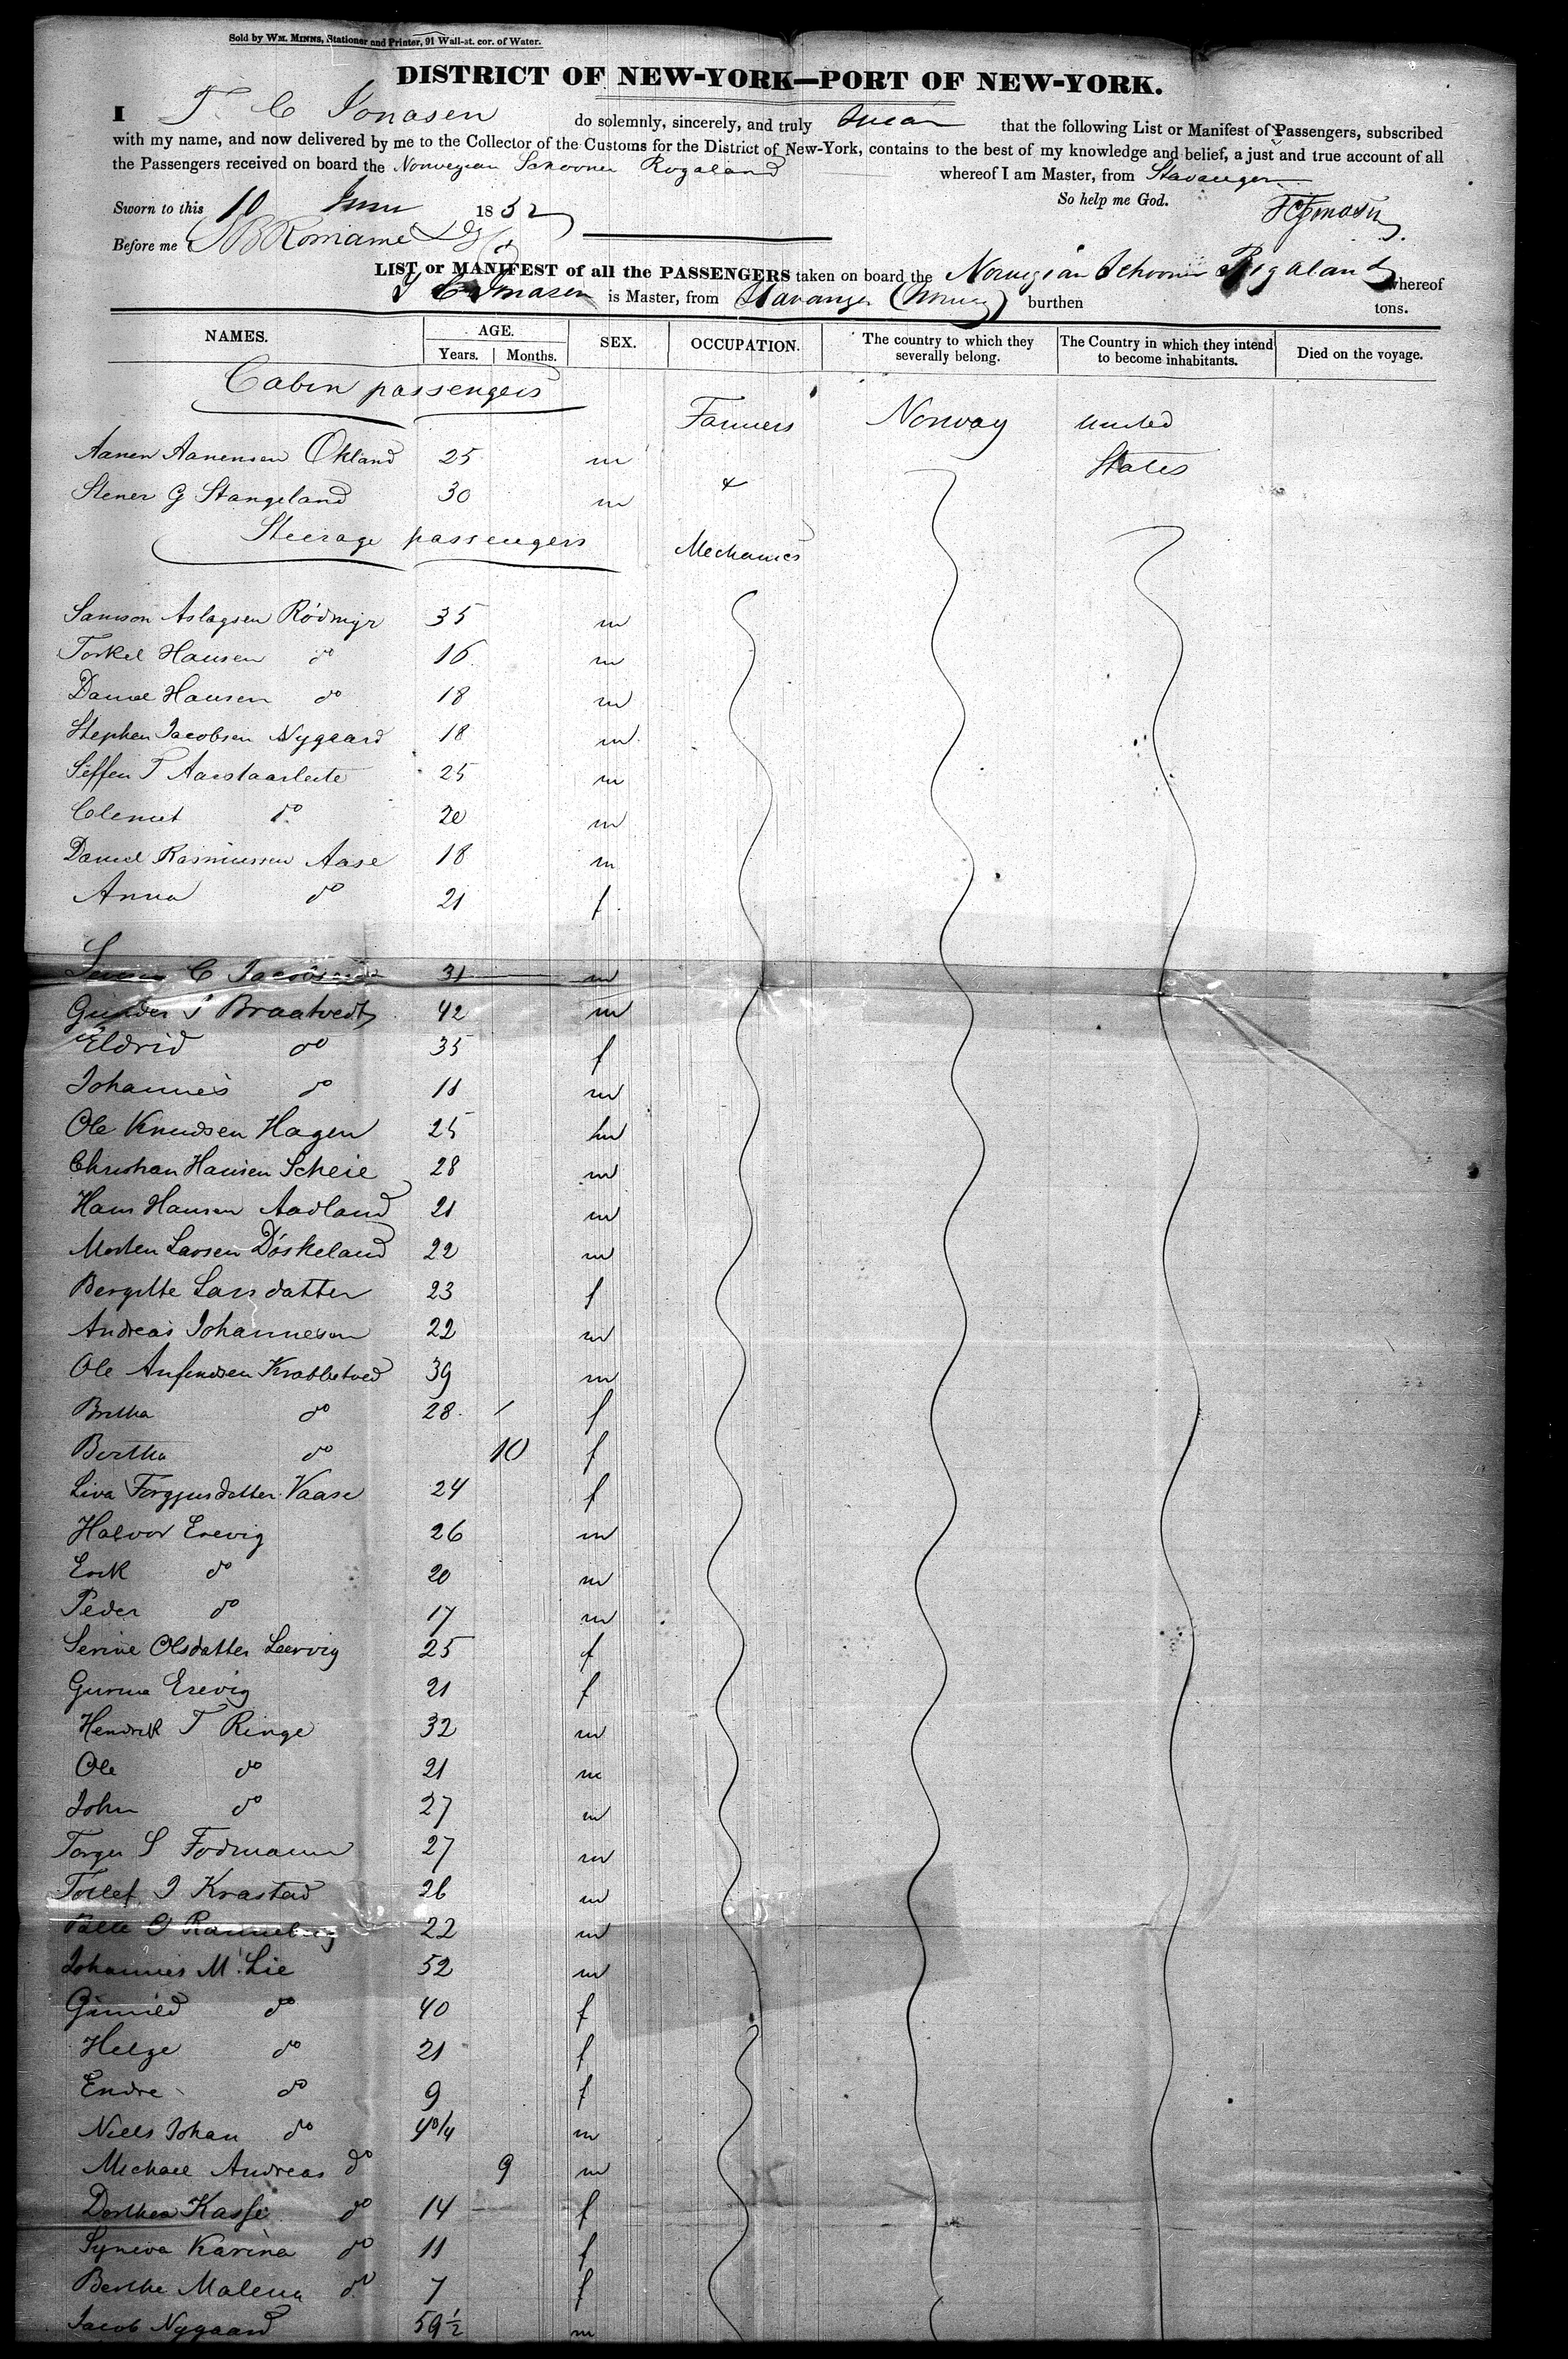 Sold by WM. MINNS, Stationer and Printer, 91 Wall-st. cor. of Water.
DISTRICT OF NEW-YORK—PORT OF NEW-YORK.
I T. C Jonasen do solemnly, sincerely, and truly Swear that the following List or Manifest of Passengers, subscribed
with my name, and now delivered by me to the Collector of the Customs for the District of New-York, contains to the best of my knowledge and belief, a just and true account of all
the Passengers received on board the Norwegian Schooner Rogaland whereof I am Master, from Stavanger
So help me God.
Sworn to this 10 June 1852
Before me
LIST or MANIFEST of all the PASSENGERS taken on board the Norwegian Schooner Rogaland whereof
T C Jonasen is Master, from Stavanger (Norway) burthen tons.
NAMES. AGE. Years. Months. SEX. OCCUPATION. The country to which they severally belong. The Country in which they intend to become inhabitants. Died on the voyage.
Cabin passengers
Farmers Norway United
Aanen Aanensen Okland 25 m States
Stener G Stangeland 30 m &
Steerage passengers Mechanics
Samson Aslagsen Rödmyr 35 m
Torkel Hansen do 16 m
Daniel Hansen do 18 m
Stephen Jacobsen Nygaard 18 m
Siffen T Aarstaarleite 25 m
Clemet do 20 m
Daniel Rasmussen Aase 18 m
Anna do 21 f
C Jacobsen 31 m
Gunder Braatvedt 42 m
Eldrid do 35 f
Johannes do 11 m
Ole Knudsen Hagen 25 m
Christian Hansen Scheie 28 m
Hans Hansen Aadland 21 m
Morten Larsen Döskeland 22 m
Bergitte Larsdatter 23 f
Andreas Johannesen 22 m
Ole Anfindsen Krabbetved 39 m
Britha do 28 f
Bertha do 10 f
Liva Torgjusdatter Vaase 24 f
Halvor Erevig 26 m
Erik do 20 m
Peder do 17 m
Serine Olsdatter Leervig 25 f
Gurina Erevig 21 f
Hendrik T Ringe 32 m
Ole do 21 m
John do 27 m
Torger S Fodmann 27 m
Tollef J Krastad 26 m
22 m
Johannes M Lie 52 m
Gunild do 40 f
Helge do 21 f
Endre do 9 f
Niels Johan do m
Michael Andreas do 9 m
Dorthea Kasse do 14 f
Syneva Karina do 11 f
Berthe Malena do 7 f
Jacob Nygaard 59½ m